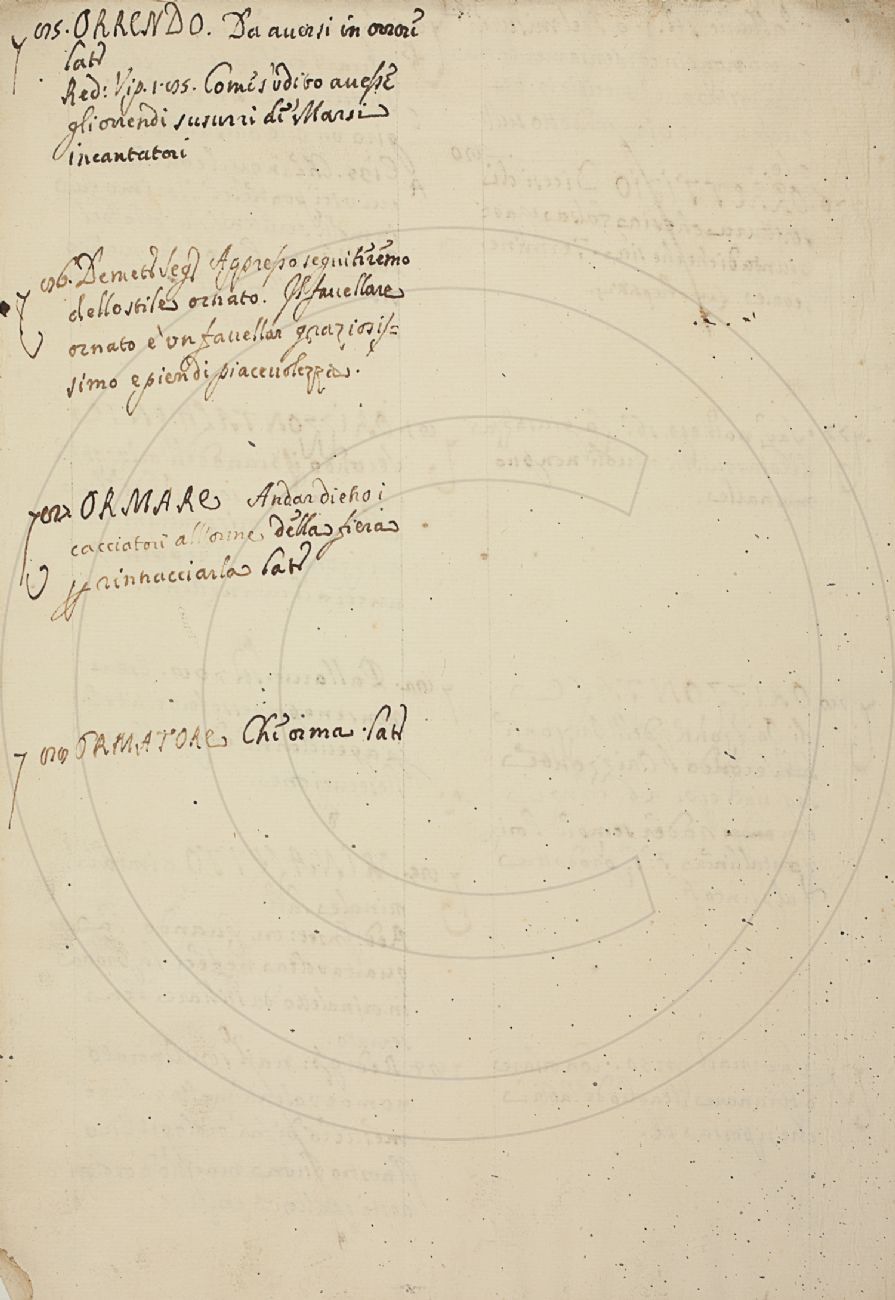 ORRENDO. Da aversi in orrore
Lat
Red: Vip. 1. Come s'udito avesse
gli orrendi susurri de' Marsi
incantatori
Demet: Segn Appresso seguiteremo
dello stile ornato. Il favellare
ornato è un favellar graziosis=
simo e pien di piacevolezza.
ORMARE Andar dietro i
cacciatori all'orme della fiera
p rintracciarla Lat
ORMATORE Che orma. Lat